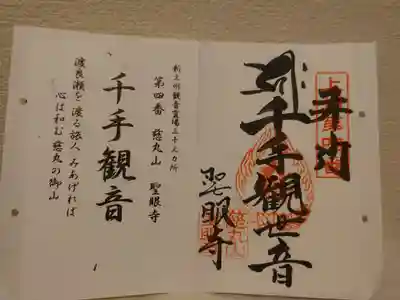 奉拝
千手觀世音
聖眼寺
新上州観音霊場三十三カ所
第四番 慈丸山 聖眼寺
千手観音
渡良瀬を渡る旅人みあげれば
心は和む慈丸の御山